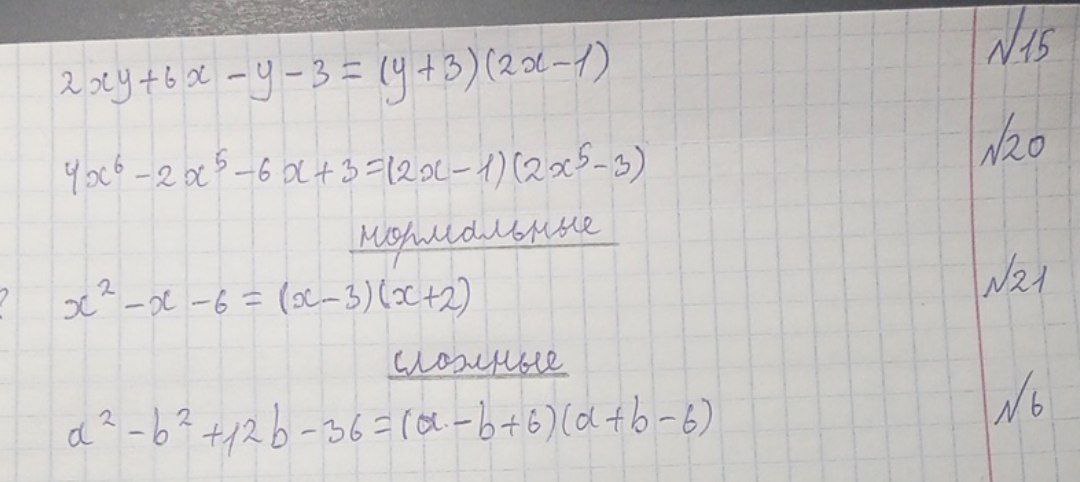 2xy+6x-y-3=(y+3)(2x-1) N15
4x⁶-2x⁵-6x+3=(2x-1)(2x⁵-3) N20
нормальные
? x²-x-6=(x-3)(x+2) N21
сложные
a²-b²+12b-36=(a-b+6)(a+b-6) N6